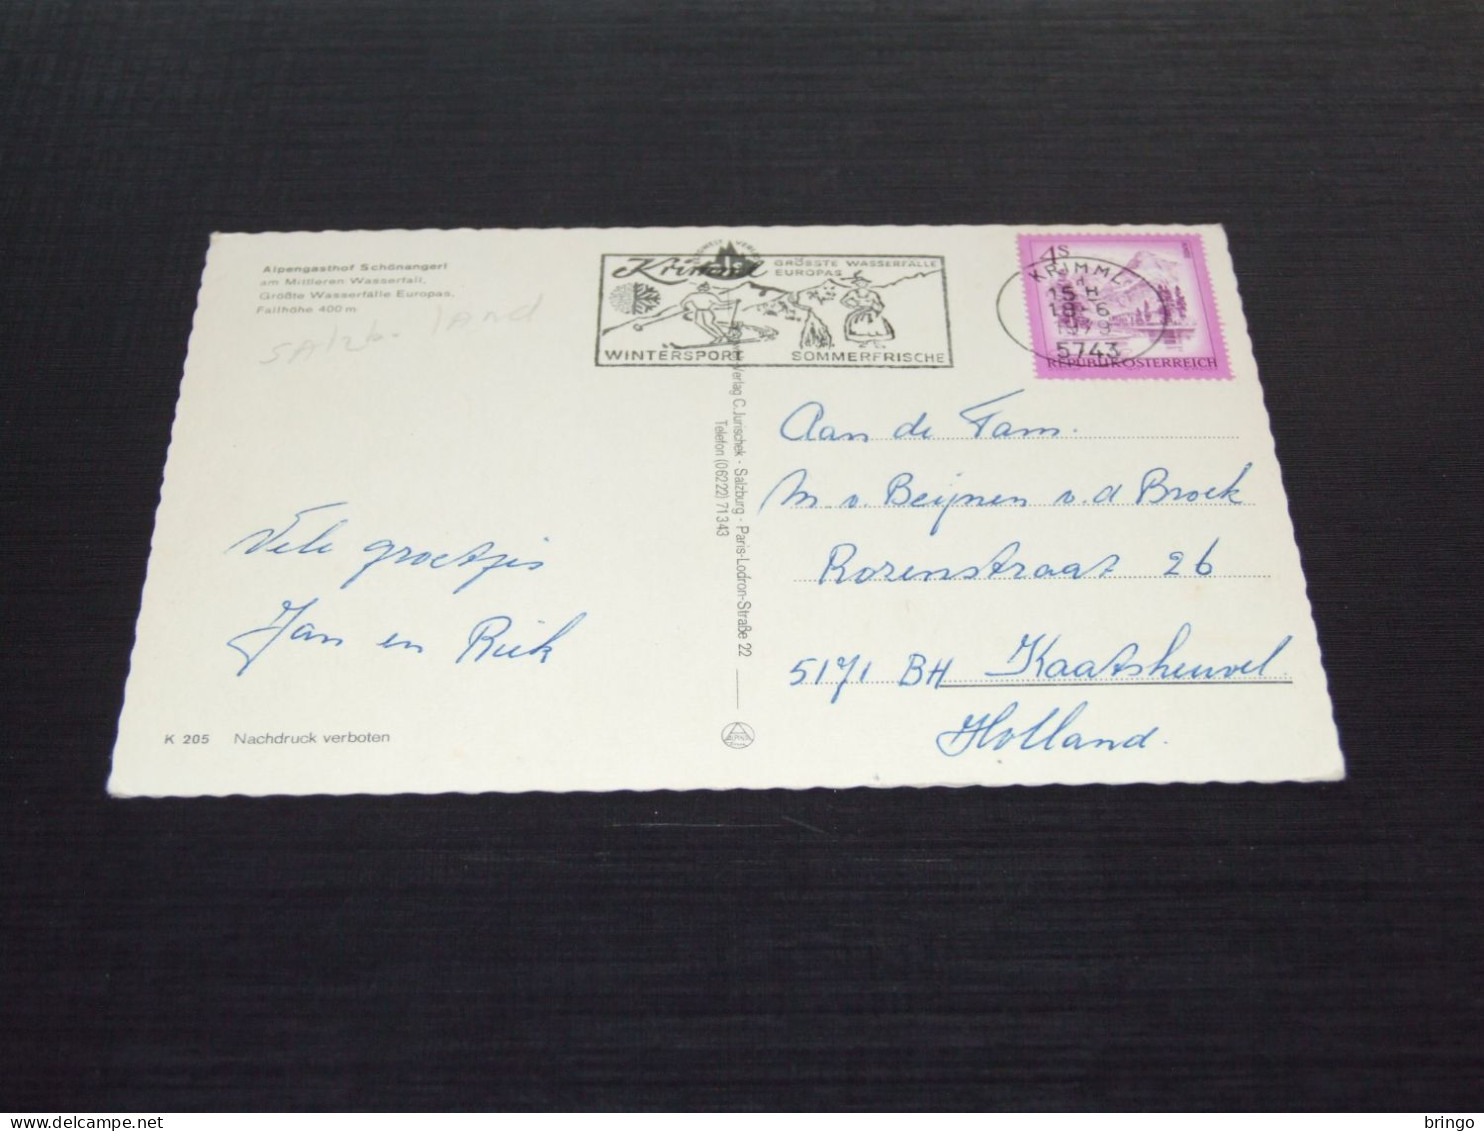 Alpengasthof Schönangerl
am Mittleren Wasserfall,
Größte Wasserfälle Europas,
Fallhöhe 400 m
Salzb. land
Krimml
GRÖSSTE WASSERFÄLLE
EUROPAS
WINTERSPORT SOMMERFRISCHE
KRIMML
15 H
1979
5743
1S
REPUBLIK ÖSTERREICH
Verlag C. Jurischek - Salzburg - Paris-Lodron-Straße 22
Telefon (06222) 71343
Aan de Fam.
M v. Beijnen v.d Broek
Rozenstraat 26
5171 BH Kaatsheuvel
Holland.
Vele groetjes
Jan en Riek
K 205 Nachdruck verboten
bringo